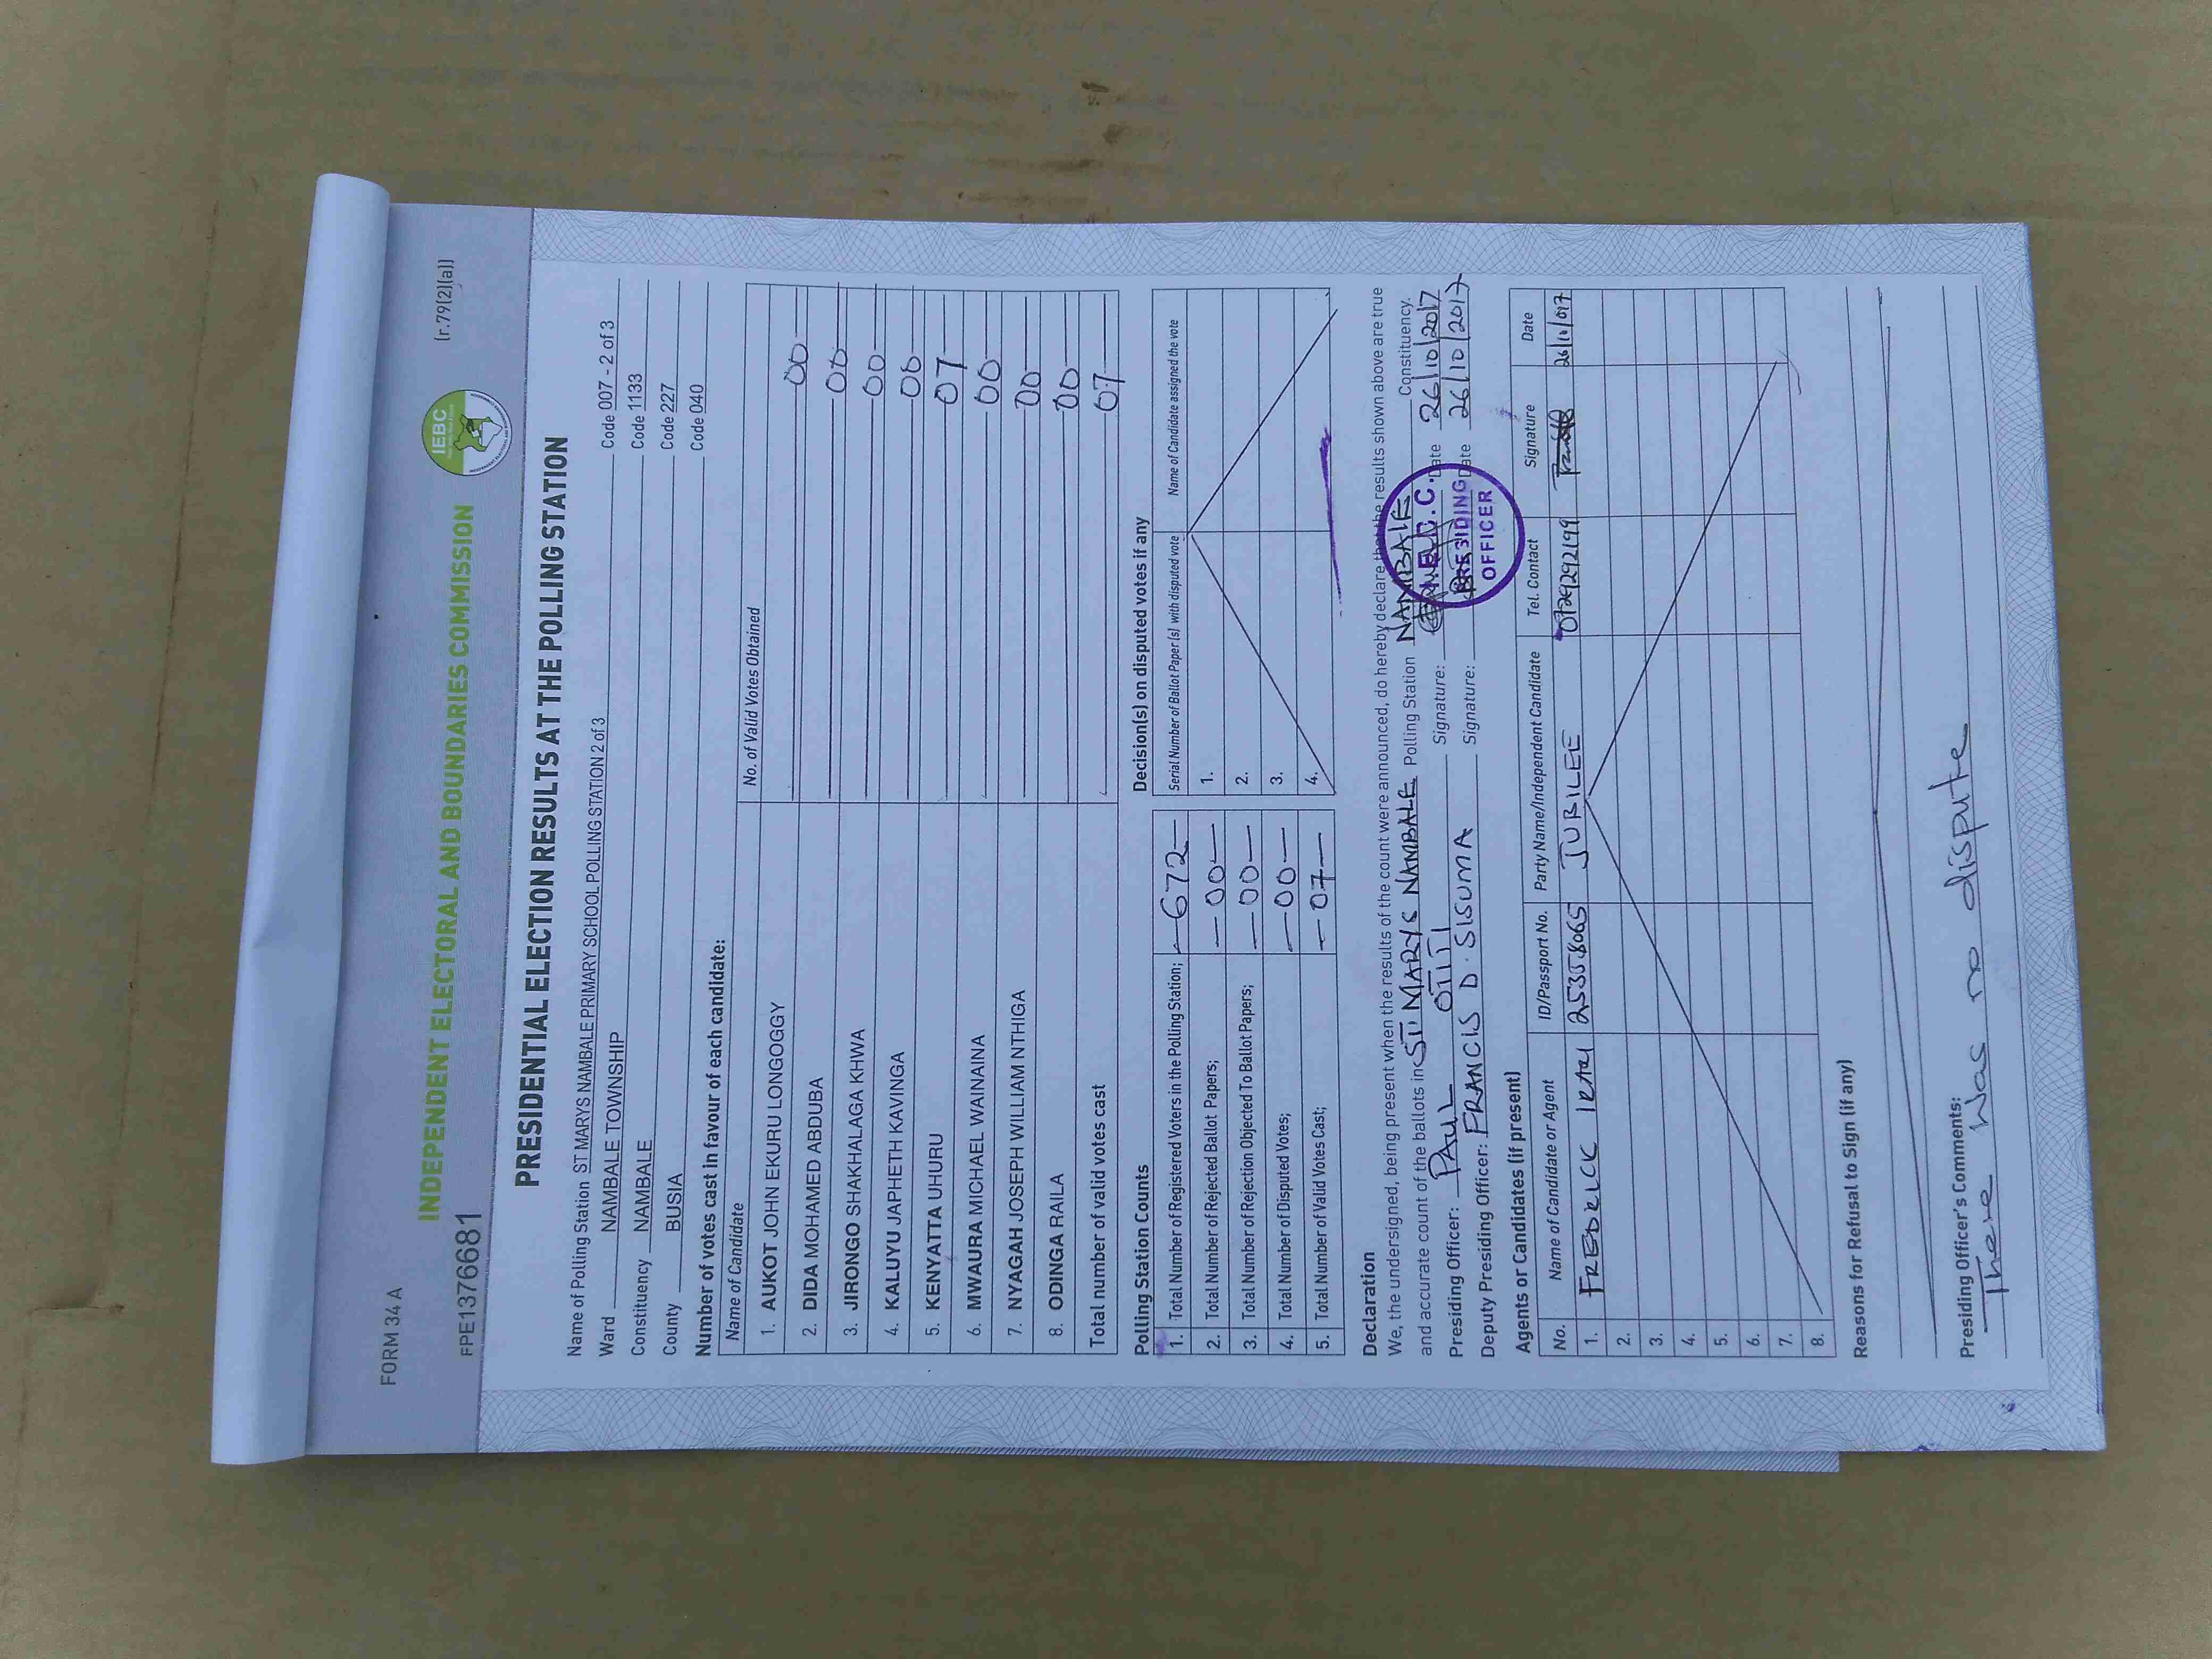 FORM 34 A
[r.79(2)(a)]
IEBC
INDEPENDENT ELECTORAL AND BOUNDARIES COMMISSION
FPE1376681
PRESIDENTIAL ELECTION RESULTS AT THE POLLING STATION
Name of Polling Station ST MARYS NAMBALE PRIMARY SCHOOL POLLING STATION 2 of 3 Code 007 - 2 of 3
Ward NAMBALE TOWNSHIP Code 1133
Constituency NAMBALE Code 227
County BUSIA Code 040
Number of votes cast in favour of each candidate:
Name of Candidate No. of Valid Votes Obtained
1. AUKOT JOHN EKURU LONGOGGY 00
2. DIDA MOHAMED ABDUBA 00
3. JIRONGO SHAKHALAGA KHWA 00
4. KALUYU JAPHETH KAVINGA 00
5. KENYATTA UHURU 07
6. MWAURA MICHAEL WAINAINA 00
7. NYAGAH JOSEPH WILLIAM NTHIGA 00
8. ODINGA RAILA 00
Total number of valid votes cast 07
Polling Station Counts
1. Total Number of Registered Voters in the Polling Station; 672
2. Total Number of Rejected Ballot Papers; 00
3. Total Number of Rejection Objected To Ballot Papers; 00
4. Total Number of Disputed Votes; 00
5. Total Number of Valid Votes Cast; 07
Decision(s) on disputed votes if any
Serial Number of Ballot Paper(s) with disputed vote Name of Candidate assigned the vote
1.
2.
3.
4.
Declaration
We, the undersigned, being present when the results of the count were announced, do hereby declare that the results shown above are true
and accurate count of the ballots in ST MARYS NAMBALE Polling Station NAMBALE Constituency.
Presiding Officer: PAUL OTIITI Signature: Date 26/10/2017
Deputy Presiding Officer: FRANCIS D. SISUMA Signature: Date 26/10/2017
PRESIDING
OFFICER
Agents or Candidates (if present)
No. Name of Candidate or Agent ID/Passport No. Party Name/Independent Candidate Tel. Contact Signature Date
1. FREDRICK 25358065 JUBILEE 0729292199
2.
3.
4.
5.
6.
7.
8.
Reasons for Refusal to Sign (if any)
Presiding Officer's Comments:
There was no dispute